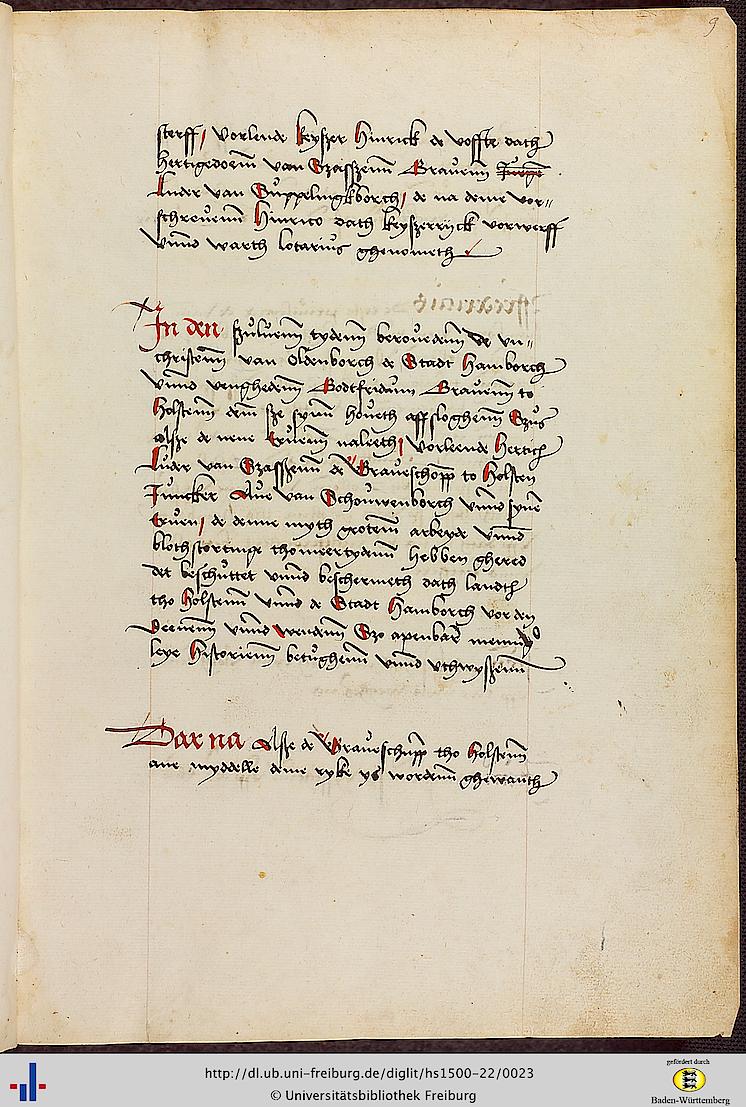 9
sterff, vorlende keyszer Hinrick de voffte dath
hertigedoem van Szasszenn Gravenn
Luder van Suppelingkborch, de na deme vor-
schrevenn Hinrico dath keyszerrijck vorwerff
vnnd warth lotarius ghenometh
In den szuluenn tydenn berouedenn de vn-
christenn van Oldenborch de Stadt Hamborch
vnnd venghedenn Godtfridum Gravenn to
Holstenn dem sze synn houeth aff sloghenn Szus
alsze de nene eruenn naleeth, vorleende Hertich
Luder van Szasszenn de Graueschopp to Holsten
Juncker Alue van Schouwenborch vnnd syne
eruen, de denne myth grotem arbeyde vnnd
blothstortinge thomeertydenn hebben ghered
det beschuttet vnnd beschermeth dath landth
tho Holstenn vnnd de Stadt Hamborch vor den
Deenenn vnnd wendenn Szo apenbar menni
leye Historienn betughenn vnnd vthwyszenn
Dar na Alsze de Graueschupp tho Holstenn
ane myddelle deme ryke ys wordenn ghewanth
http://dl.ub.uni-freiburg.de/diglit/hs1500-22/0023
© Universitätsbibliothek Freiburg
gefördert durch
Baden-Württemberg